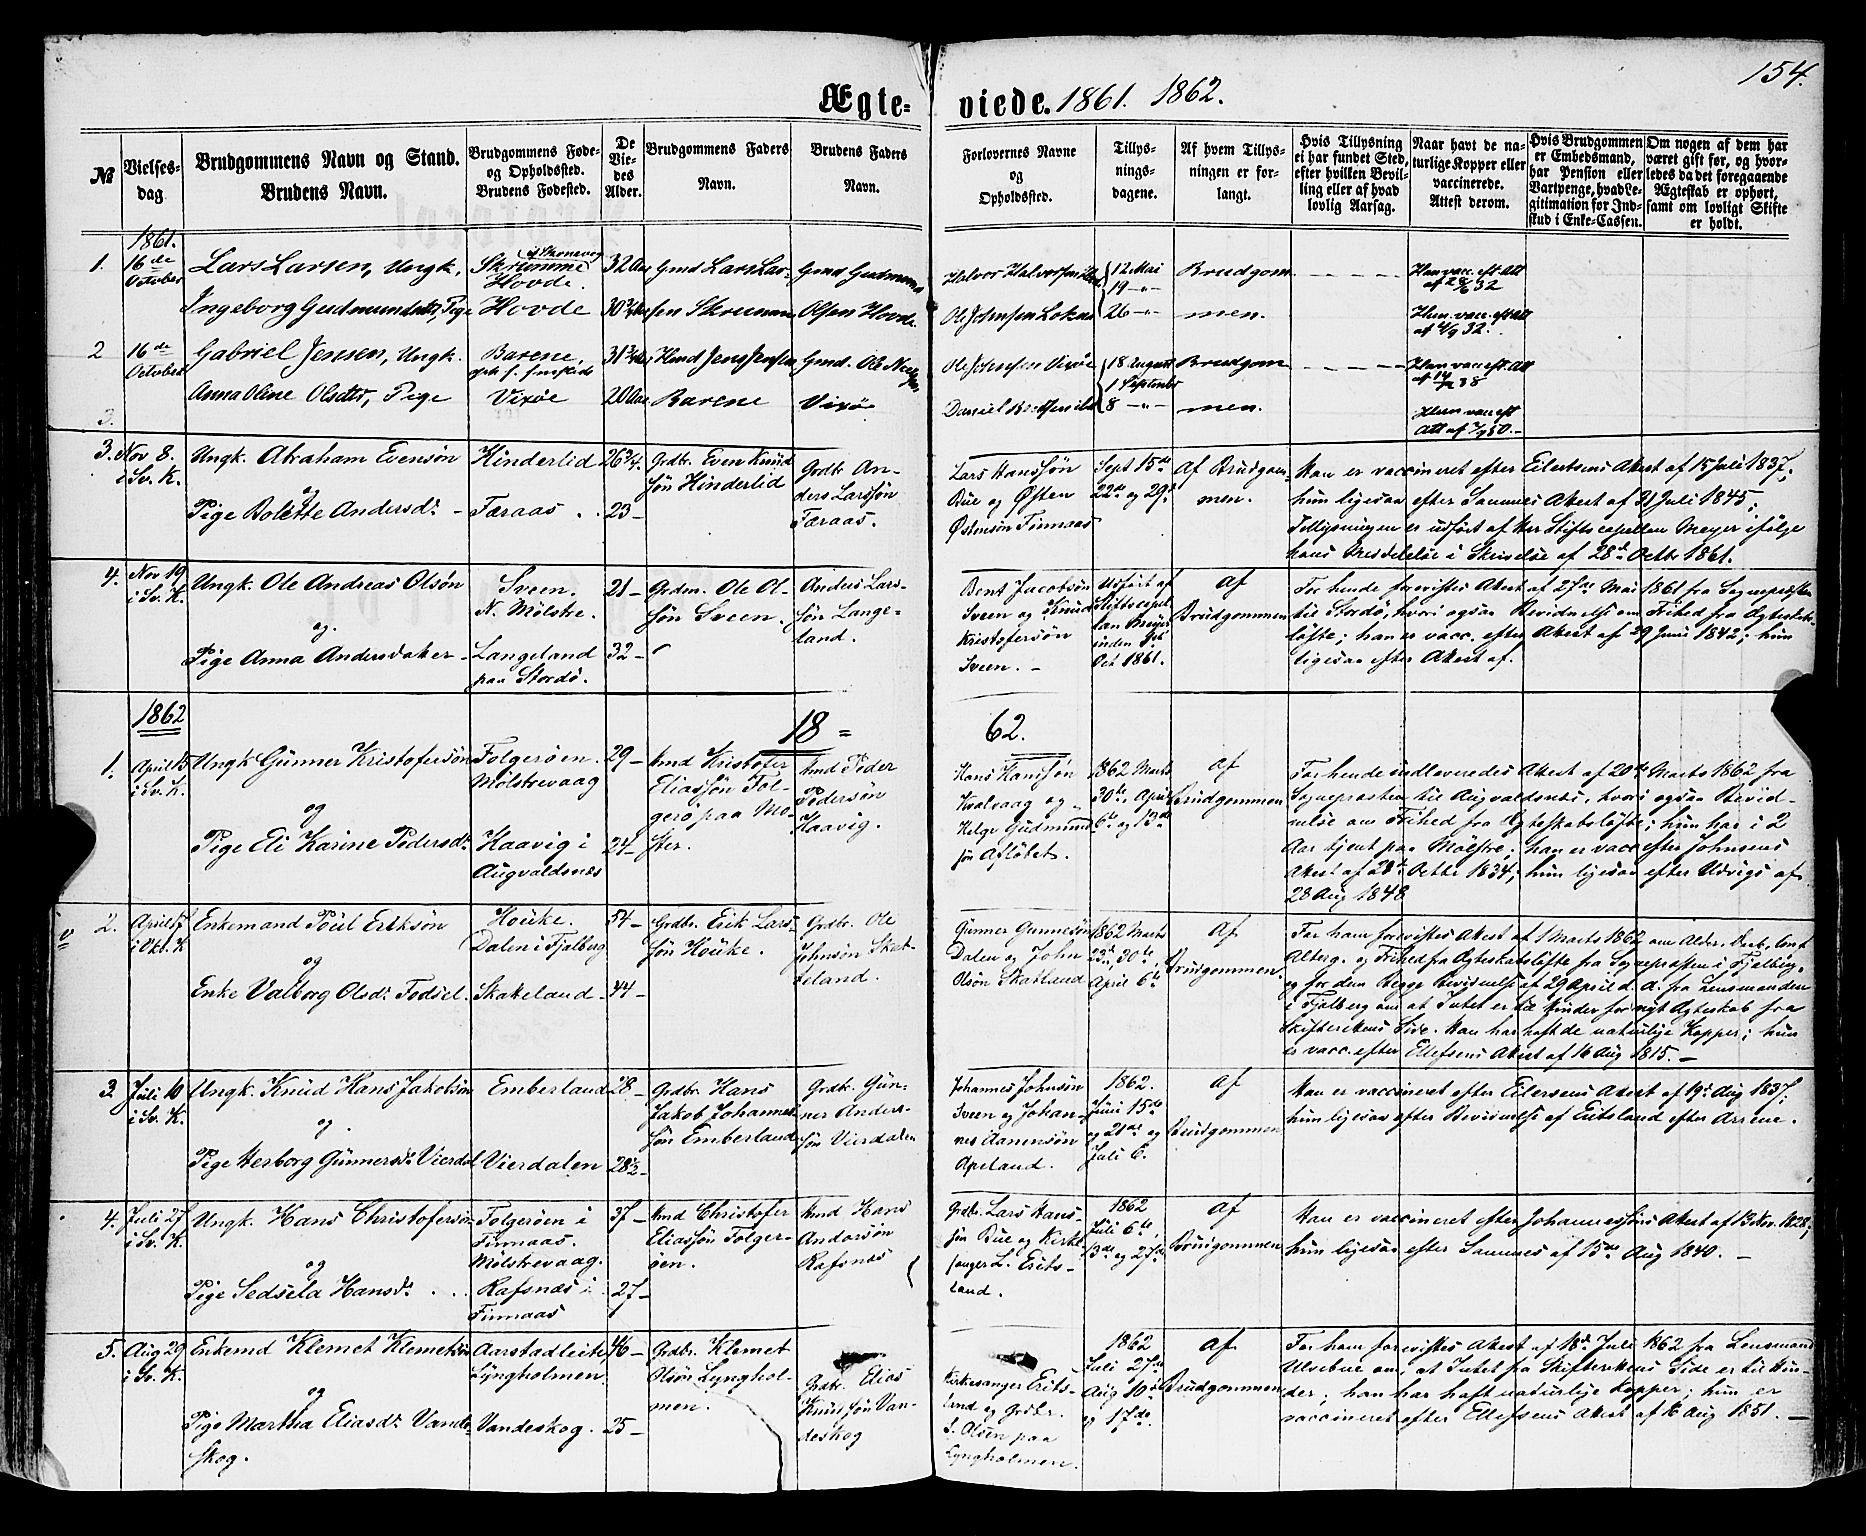 154.
Ægte-
viede. 1861. 1862.
№
Vielses-
dag
Brudgommens Navn og Stand.
Brudens Navn.
Brudgommens Føde-
og Opholdssted.
Brudens Fødested.
De
Vie-
des
Alder.
Brudgommens Faders
Navn.
Brudens Faders
Navn.
Forlovernes Navne
og
Opholdssted.
Tillys-
nings-
dagene.
Af hvem Tillys-
ningen er for-
langt.
Hvis Tillysning
ei har fundet Sted,
efter hvilken Bevil-
ling eller af hvad
lovlig Aarsag.
Naar havt de na-
turlige Kopper eller
vaccinerede.
Attest derom.
Hvis Brudgommen
er Embedsmand,
har Pension eller
Vartpenge, hvad Le-
gitimation for Ind-
skud i Enke-Cassen.
Om nogen af dem har
været gift før, og hvor-
ledes da det foregaaende
Ægteskab er ophørt,
samt om lovligt Skifte
er holdt.
1861.
1. 16de
October
Lars Larsen, Ungk.
Hovde.
32 Aar
Gmd Lars Lar-
Gmd Gudmund
12 Mai
19 -"-
Brudgom
Han vac. eft. Att
Ingeborg Gudmundsdtr, Pige
Hovde
Olsen Hovde
26 -"-
men.
Hun vac. eft Att
af 4/9 32.
2 16de
October
Gabriel Jensen, Ungk.
Barene,
Gmd. Ole
18 August
1 September
Brudgom
Han vac eft. Att
Anna Oline Olsdtr, Pige
Vixøe
20 Aar
Barene
Vixø
8 -"-
men.
Hun vac eft
3.
3. Nov 8.
i Sv. K.
Ungk. Abraham Evensøn
og
Pige Bolette Andersd:
Hinderlid
Færaas
26 3/4.
23 -
Grdbr. Even Knud
søn Hinderlid
Grdbr An-
ders Larssøn
Færaas.
Lars Hanssøn
Bue og Østen
Østensøn Finnaas
Sept 15de
22de og 29de
Af Brudgom
men.
Han er vaccineret efter Eilertsens Attest af 15 Juli 1837;
hun ligesaa efter Sammes Attest af 21 Juli 1845;
Tillysningen er udført af Herr Stiftscapellan Meyer ifølge
hans Meddelelse i Skrivelse af 28de Octbr 1861.
4. Nov 19
i Sv. K.
Ungk. Ole Andreas Olsøn
og.
Pige Anna Andersdatter
Sveen.
N. Mølstre.
Langeland
paa Stordø.
21 -
32 -
Grdm. Ole Ol-
søn Sveen.
Anders Lars-
søn Lange-
land.
Bent Jacobsøn
Sveen og Knud
Kristofersøn
Sveen. -
Udført af
Stiftscapel-
lan Meyer
inden
Oct 1861.
Af
Brudgommen
For hende forevistes Attest af 27de Mai 1861 fra Sognepræsten
til Stordø, hvori ogsaa Bevidnelse om Frihed fra Ægteskabs-
løfte; han er vacc. efter Attest af 29 Juni 1842; hun
ligesaa efter Attest af.
1862
18 =
62.
1. April 15
i Sv. K.
Ungk Gunner Kristofersøn
og
Pige Eli Karine Pedersd:
Folgerøen.
Mølstrevaag
Haavig i
Augvaldsnæs
29 -
24 -
Hmd Kristofer
Eliassøn Fol-
gerø paa Mø-
ster.
Hmd Peder
Pedersøn
Haavig.
Hans Hanssøn
Kvalvaag og
Helge Gudmund
søn Afløbet.
1862 Marts
30te, April
6te og 13de
af
Brudgommen
For hende indleveredes Attest af 20de Marts 1862 fra
Sognepræsten til Augvaldsnæs, hvori ogsaa Bevid-
nelse om Frihed fra Ægteskabsløfte; hun har i 2
Aar tjent paa Møstre; han er vacc efter Johnsens
Attest af 28de Octbr 1834; hun ligesaa efter Udvigs af
28 Aug 1848
2. April 17
Enkemand Poul Eriksøn
og
Enke Valborg Olsd:
Houke.
Dalen i Fjelberg
Skakeland
54 -
44 -
Grdbr. Erik Lars-
søn Houke.
Grdbr. Ole
Johnsøn Skat-
teland.
Gunner Gunnesøn
Dalen og John
Olsøn Skatland
1862 Marts
23de, 30te,
April 6te
Af
Brudgommen.
For ham forevistes Attest af 1 Marts 1862 om Alder, Daab, Conf
Altergr. og Frihed fra Ægteskabsløfte fra Sognepræsten i Fjelberg,
og for dem Begge Bevidnelse af 29 April d. A. fra Lensmanden
i Fjelberg om at Intet er til Hinder for nyt Ægteskab fra
Skifterettens Side. Han har haft de naturlige Kopper; hun
er vacc. efter Ellefsens Attest af 16 Aug 1815. -
3 Juli 10
i Sv. K.
Ungk. Knud Hans Jakobsøn
og.
Pige Herborg Gunnersd: Vierdal
Emberland
Vierdalen
28 -
28½ -
Grdbr. Hans
Jakob Johannes-
søn Emberland
Grdbr. Gun-
ner Anders-
søn Vierdalen
Johannes Johnsøn
Sveen og Johan-
nes Aanensøn
Apeland.
1862.
Juni 15de
og 21de og
Juli 6.
Af
Brudgommen
Han er vaccineret efter Eilersens Attest af 19de Aug 1837;
hun ligesaa efter Bevidnelse af Eritsland efter Arrene.
4. Juli 27
i Sv. K.
Ungk. Hans Christofersøn
og
Pige Sedsela Hansd:
Folgerøen i
Finnaas.
Mølstrevaag.
Rafsnæs i
Finnaas
37 -
27 -
Hmd Christofer
Eliassøn Folger-
øen.
Hmd Hans
Andersøn
Rafsnæs
Grdbr. Lars Hans-
søn Bue og Kirke-
sanger L. Erits-
land.
1862
Juli 6te,
13de og 27de
af
Brudgommen
Han er vaccineret efter Johannessøns Attest af 13 Nov. 1828;
hun ligesaa efter Sammes af 15de Aug 1840. -
5. Aug 29
i Sv. K.
Enkemd Klemet Klemetsøn
og
Pige Martha Eliasd: Vande-
skog.
Aarstadleite
Lyngholmen.
Vandeskog.
46 -
25 -
Grdbr. Klemet
Olsøn Lynghol-
men.
Grdbr. Elias
Knutsøn Van-
deskog
Kirkesanger Erits-
land og Grdbr.
S. Olsen paa
Lyngholmen.
1862
Juli 27de
Aug 10de
og 17de.
Af
Brudgommen
For ham forevistes Attest af 18de Juli 1862 fra Lensmand
Ulvebne om, at Intet fra Skifterettens Side er til Hin-
der; han har haft naturlige Kopper; hun er
vaccineret efter Ellefsens Attest af 16 Aug 1851. -